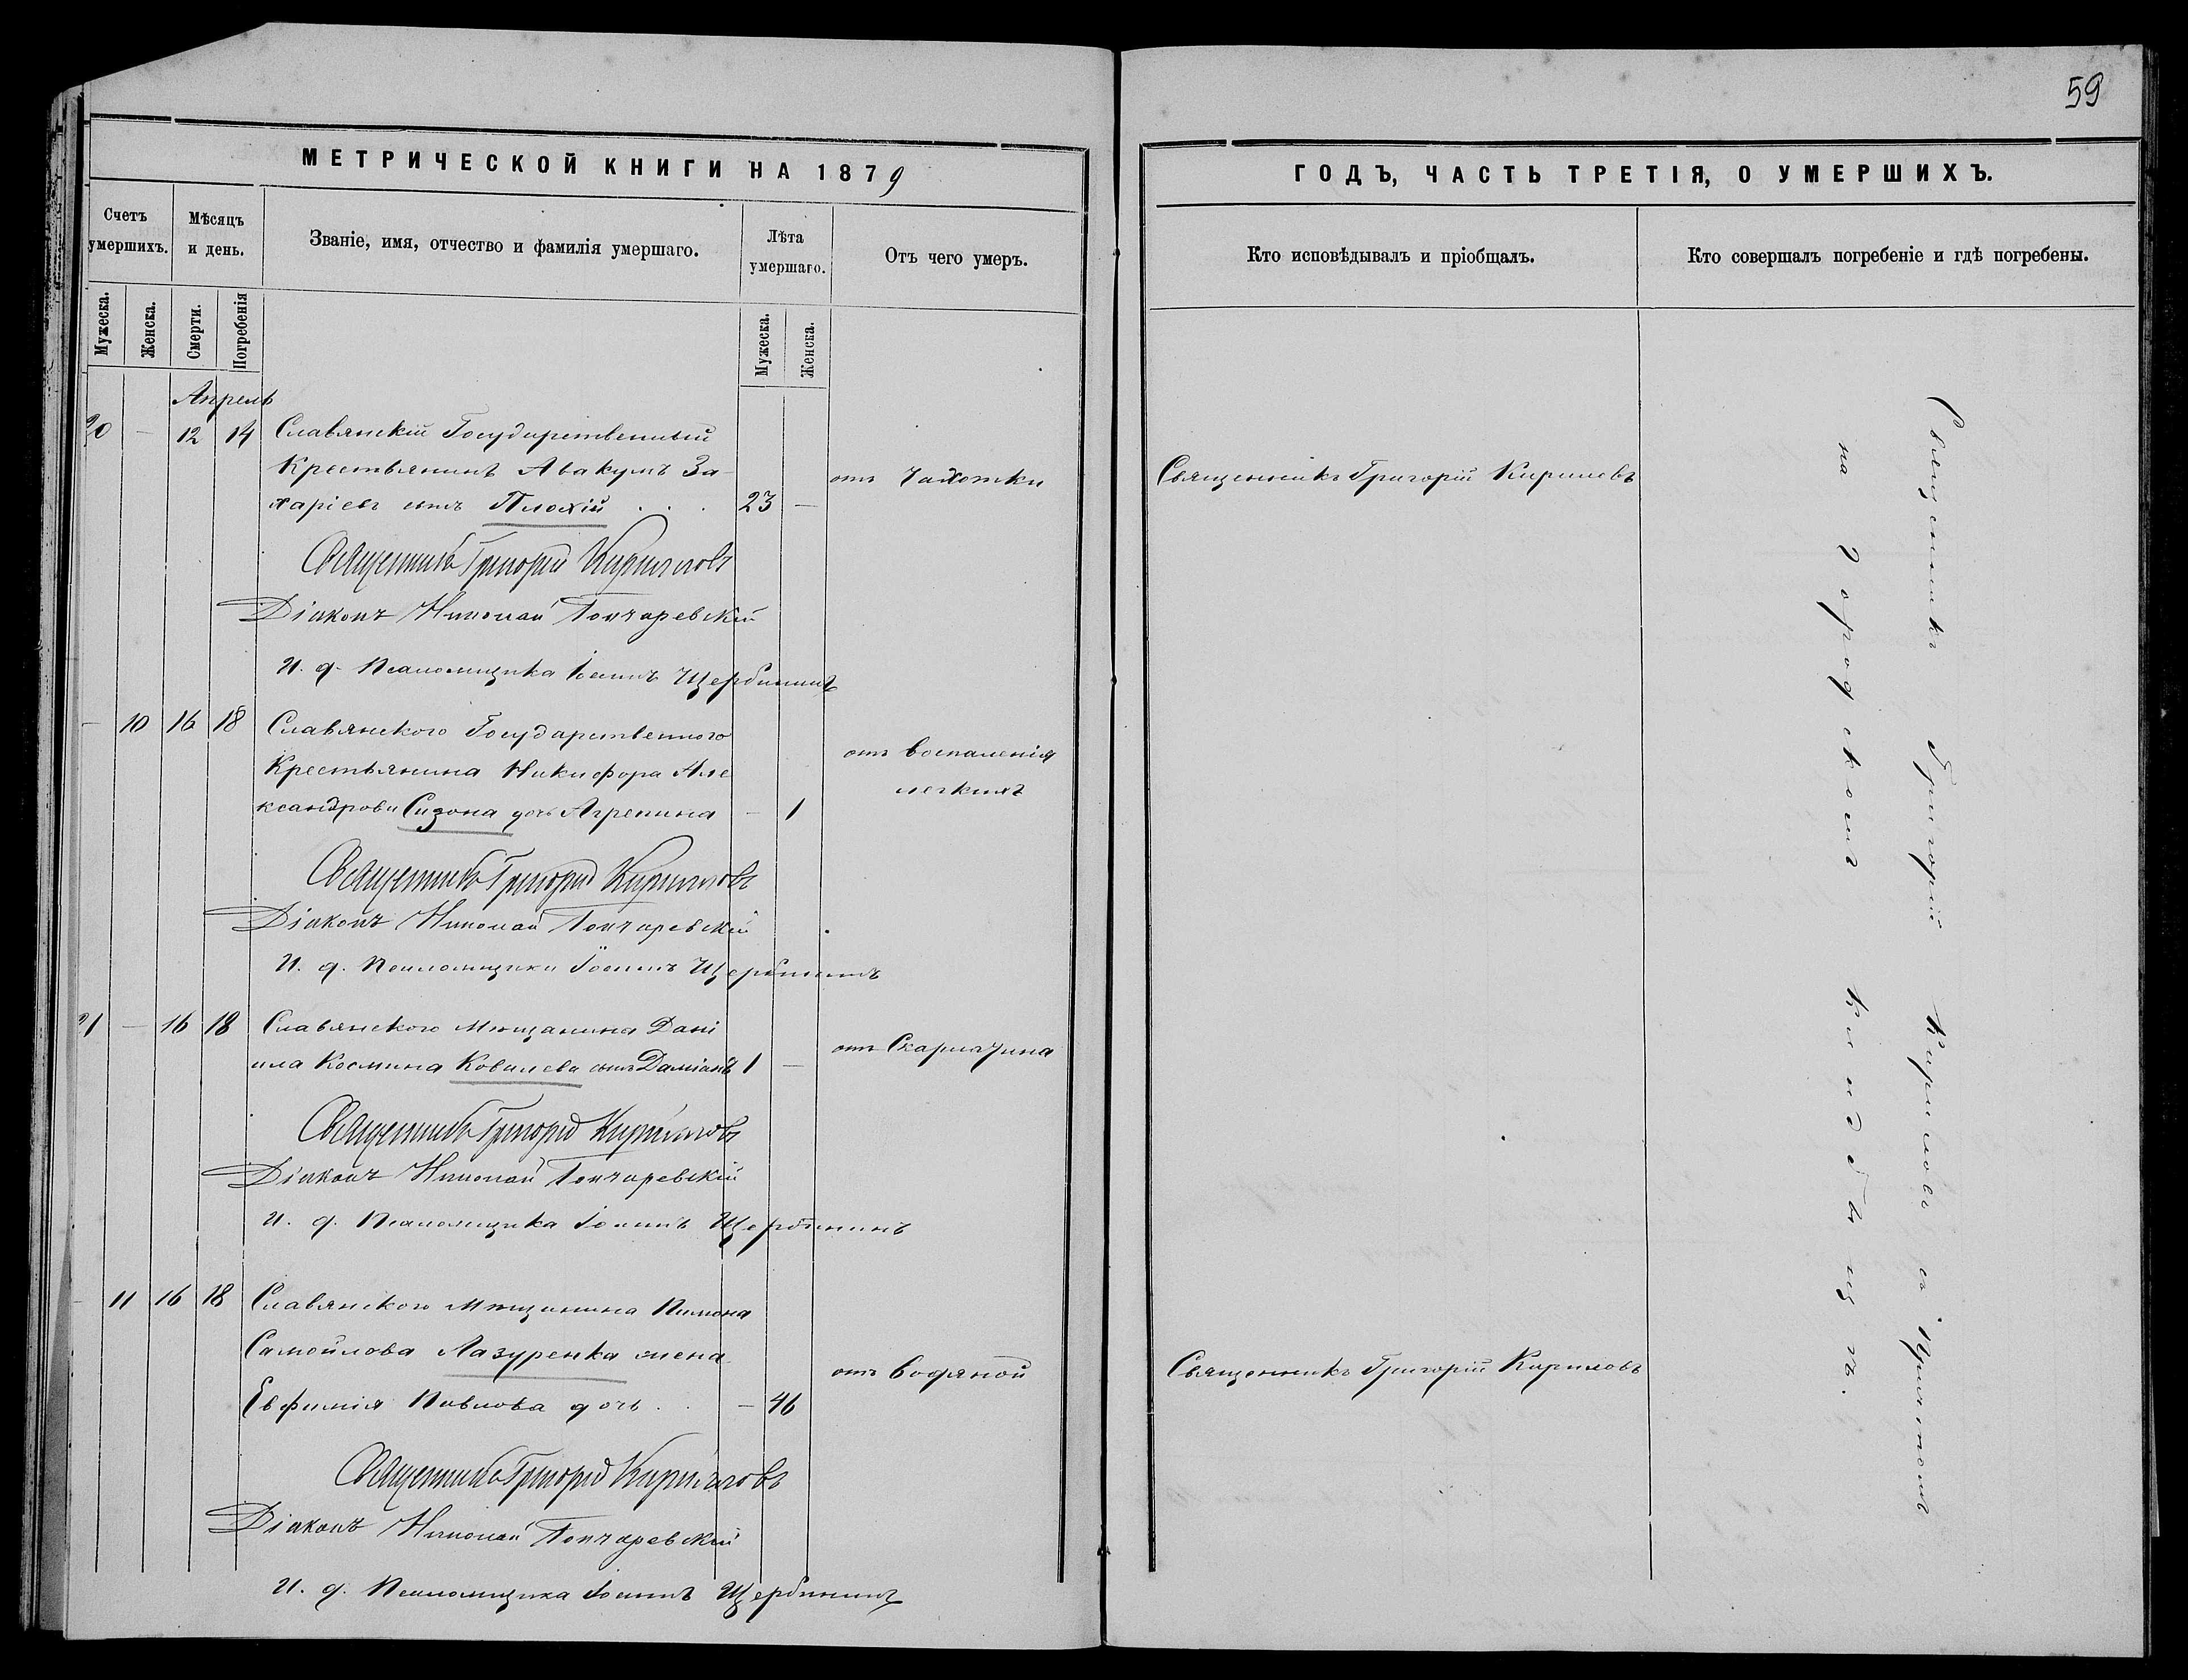 59
МЕТРИЧЕСКОЙ КНИГИ НА 1879
Счетъ умершихъ.
Мѣсяцъ и день.
Званіе, имя, отчество и фамилія умершаго.
Лѣта умершаго.
Отъ чего умеръ.
Мужеска.
Женска.
Смерти.
Погребенія
Мужеска.
Женска.
Апрель
20 — 12 14 Славянскій Государственный
Крестьянинъ Авакумъ За-
харіевъ сынъ Плохій . . . 23 —
отъ Чахотки
Священникъ Григорій Кирилловъ
Діаконъ Николай Гончаревскій
И. д. Псаломщика Іоаннъ Щербининъ
— 10 16 18 Славянского Государственного
Крестьянина Никифора Але
ксандрова Сизона дочь Агрепина — 1
отъ воспаленія
легкихъ
Священникъ Григорій Кирилловъ
Діаконъ Николай Гончаревскій
И. д. Псаломщика Іоаннъ Щербининъ
21 — 16 18 Славянского Мещанина Дані
ила Космина Ковалева сынъ Даміанъ 1 —
отъ Скарлатина
Священникъ Григорій Кирилловъ
Діаконъ Николай Гончаревскій
И. д. Псаломщика Іоаннъ Щербининъ
— 11 16 18 Славянского Мещанина Пимона
Самойлова Лазуренка жена
Евфимія Павлова дочь . . — 46
отъ водяной
Священникъ Григорій Кирилловъ
Діаконъ Николай Гончаревскій
И. д. Псаломщика Іоаннъ Щербининъ
ГОДЪ, ЧАСТЬ ТРЕТІЯ, О УМЕРШИХЪ.
Кто исповѣдывалъ и пріобщалъ.
Кто совершалъ погребеніе и гдѣ погребены.
Священникъ Григорій Кириловъ
Священникъ Григорій Кириловъ
Священникъ Григорій Кириловъ съ причтомъ
на городскомъ кладбищѣ.